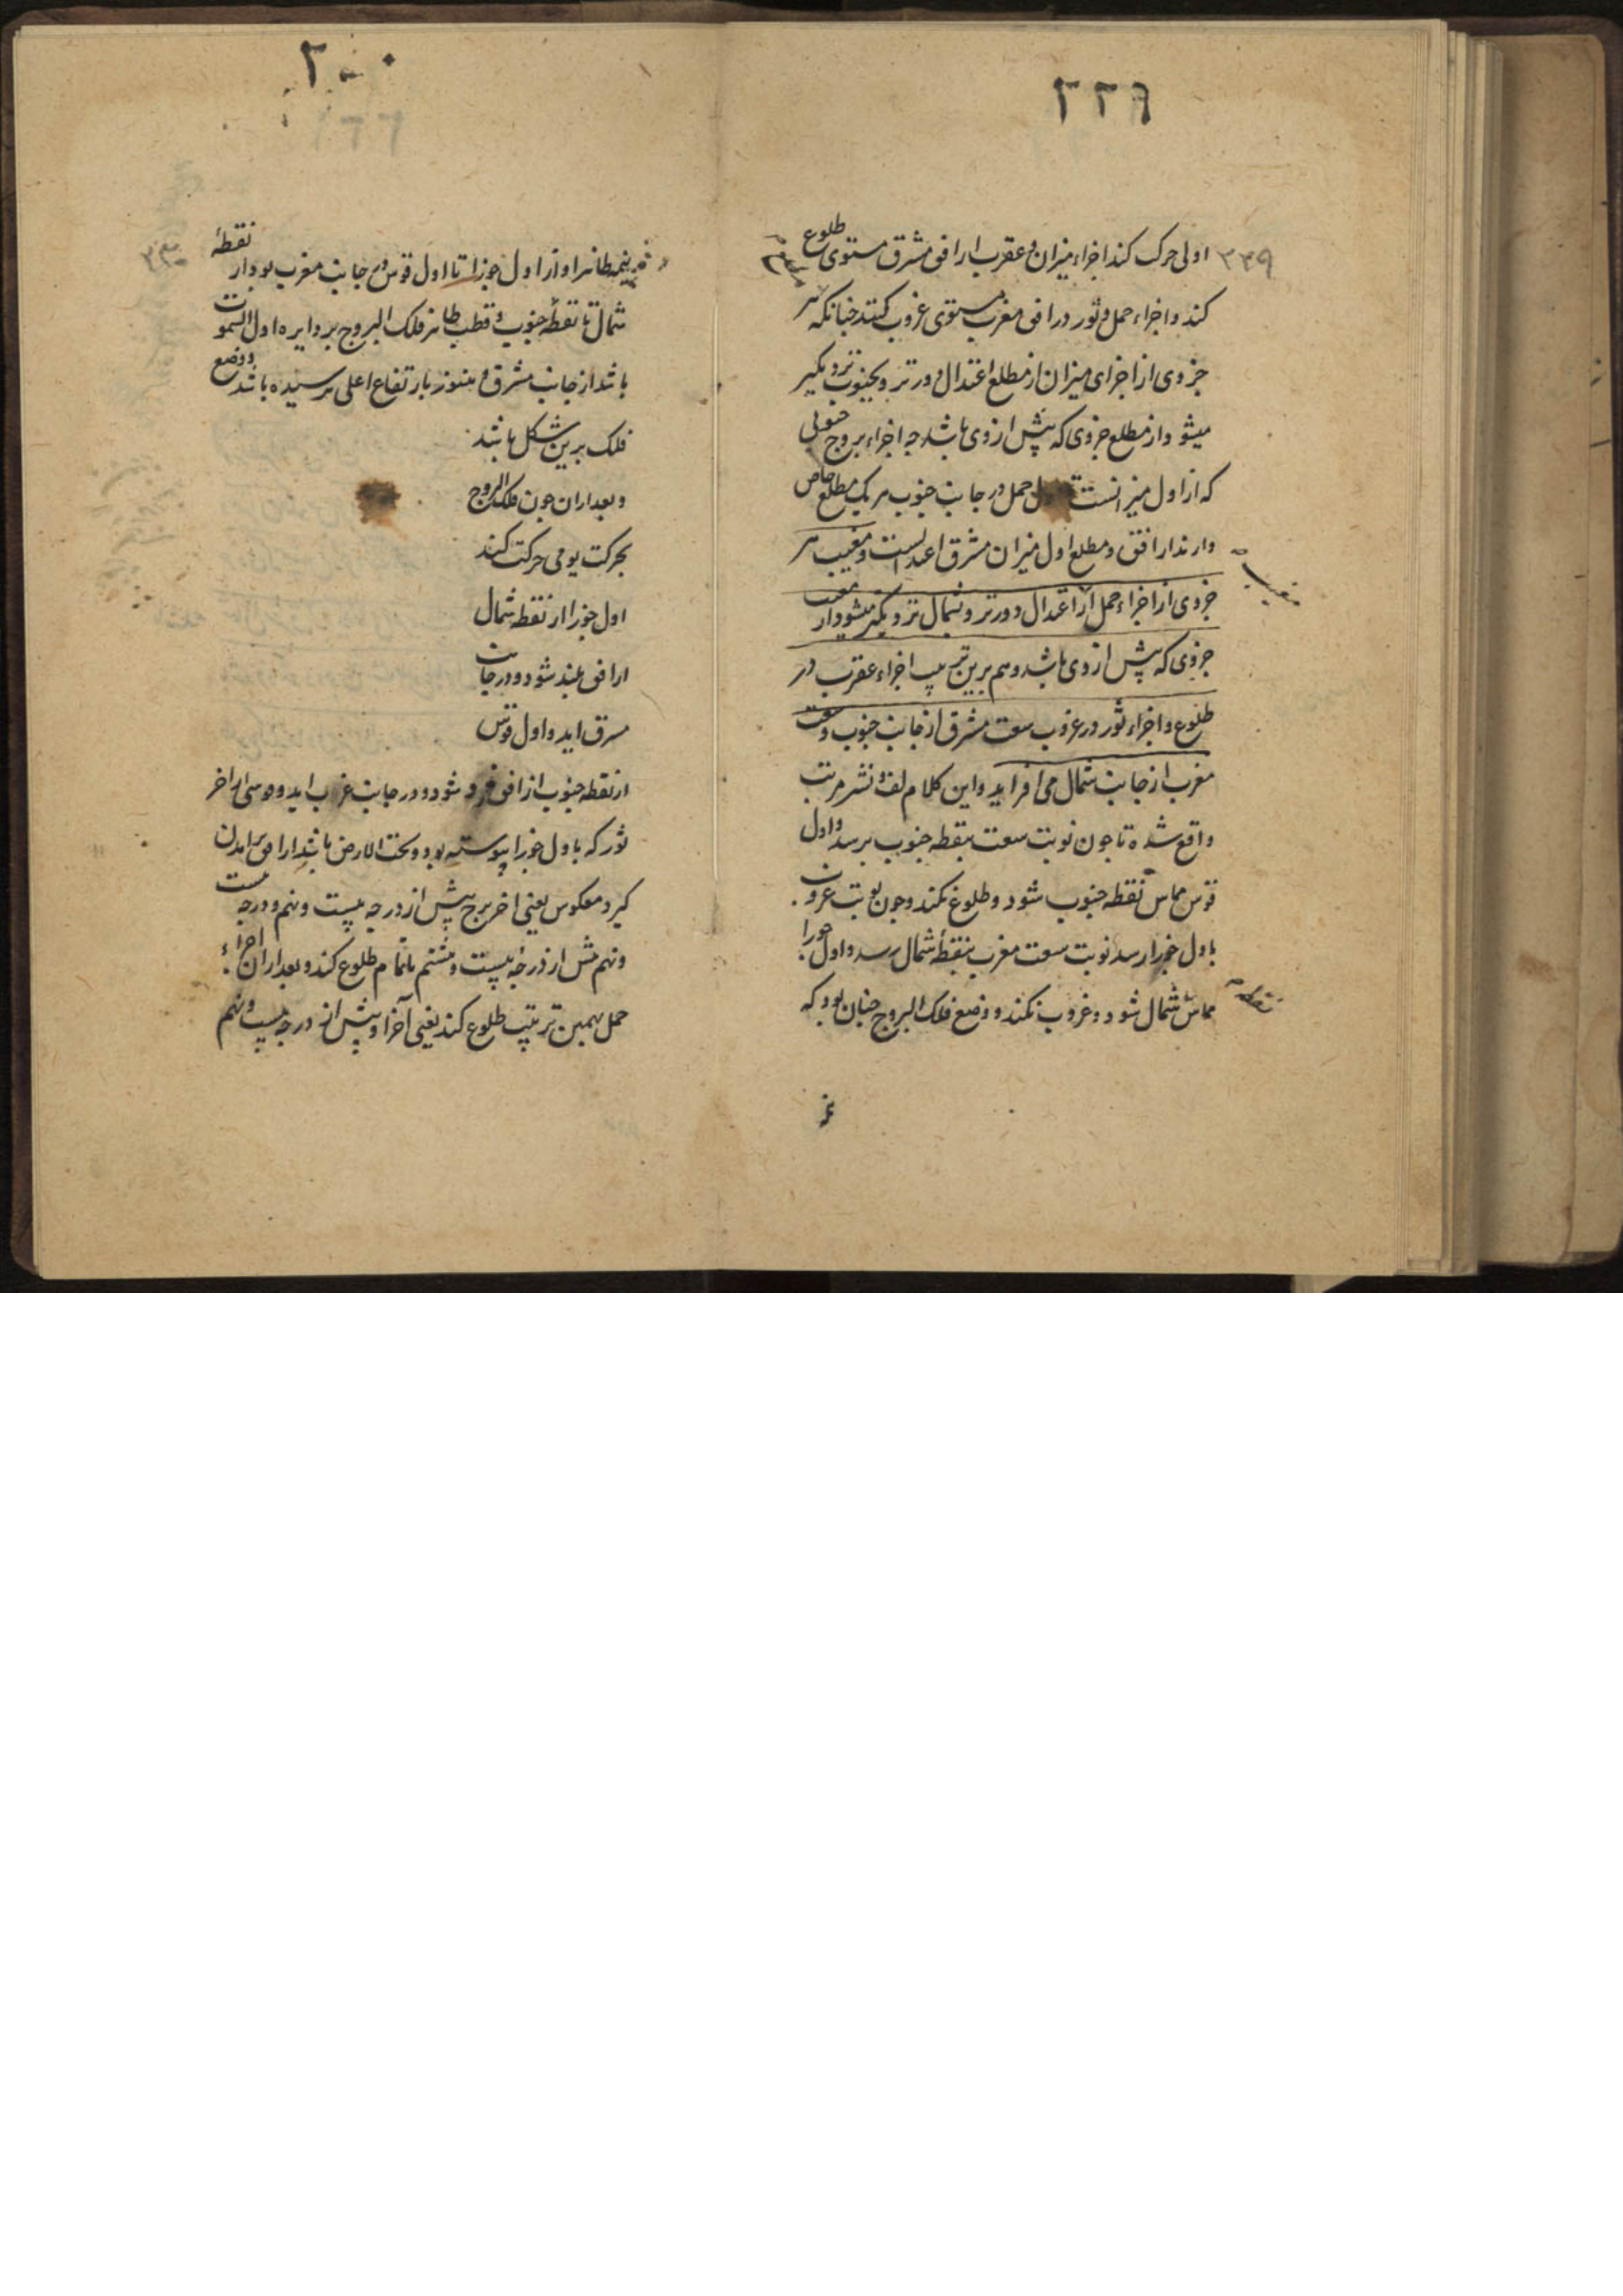 ۲۲۹
۳۳۹
اولی حرکت کند اجزاء میزان و عقرب از افق مشرق مستوی طلوع
کند و اجزاء حمل و ثور در افق مغرب مستوی غروب کنند چنانکه هر
جزوی از اجزای میزان از مطلع اعتدال دورتر و بجنوب نزدیکتر
میشود از مطلع جزوی که پیش از وی باشد چه اجزاء بروج جنوبی
که از اول میزانست حمل در جانب جنوب هر یک مطلع خاص
دارند از افق و مطلع اول میزان مشرق اعتدالست و مغیب هر
مغیب
جزوی از اجزاء حمل از اعتدال دورتر و بشمال نزدیکتر میشود از مغیب
جزوی که پیش از وی باشد و هم برین ترتیب اجزاء عقرب در
طلوع و اجزاء ثور در غروب سعت مشرق از جانب جنوب و سعت
مغرب از جانب شمال می افزاید و این کلام لف و نشر مرتب
واقع شده تا چون نوبت سعت بنقطه جنوب برسد و اول
قوس مماس نقطه جنوب شود و طلوع نکند و چون نوبت غروب
باول جوزا رسد نوبت سعت مغرب بنقطه شمال رسد و اول جوزا
مماس شمال شود و غروب نکند و وضع فلک البروج چنان بود که
نقطه
۳۰۰
نیمه ظاهر او از اول جوزا تا اول قوس در جانب مغرب بود از نقطهٔ
شمال تا نقطهٔ جنوب و قطب ظاهر فلک البروج بر دایره اول السموت
باشد از جانب مشرق و هنوز بارتفاع اعلی نرسیده باشد و وضع
فلک برین شکل باشد
و بعد از ان چون فلک البروج
بحرکت یومی حرکت کند
اول جوزا از نقطه شمال
از افق بلند شود و در جانب
مشرق اید و اول قوس
از نقطه جنوب از افق فرود شود و در جانب غرب اید و قوسی از اخر
ثور که باول جوزا پیوسته بود و تحت الارض باشد از افق برامدن
کیرد معکوس یعنی اخر برج پیش از درجه بیست و نهم و درجه بیست
و نهم پیش از درجه بیست و هشتم بتمام طلوع کند و بعد از ان اجزاء
حمل بهمین ترتیب طلوع کند یعنی آخر او پیش از درجه بیست و نهم